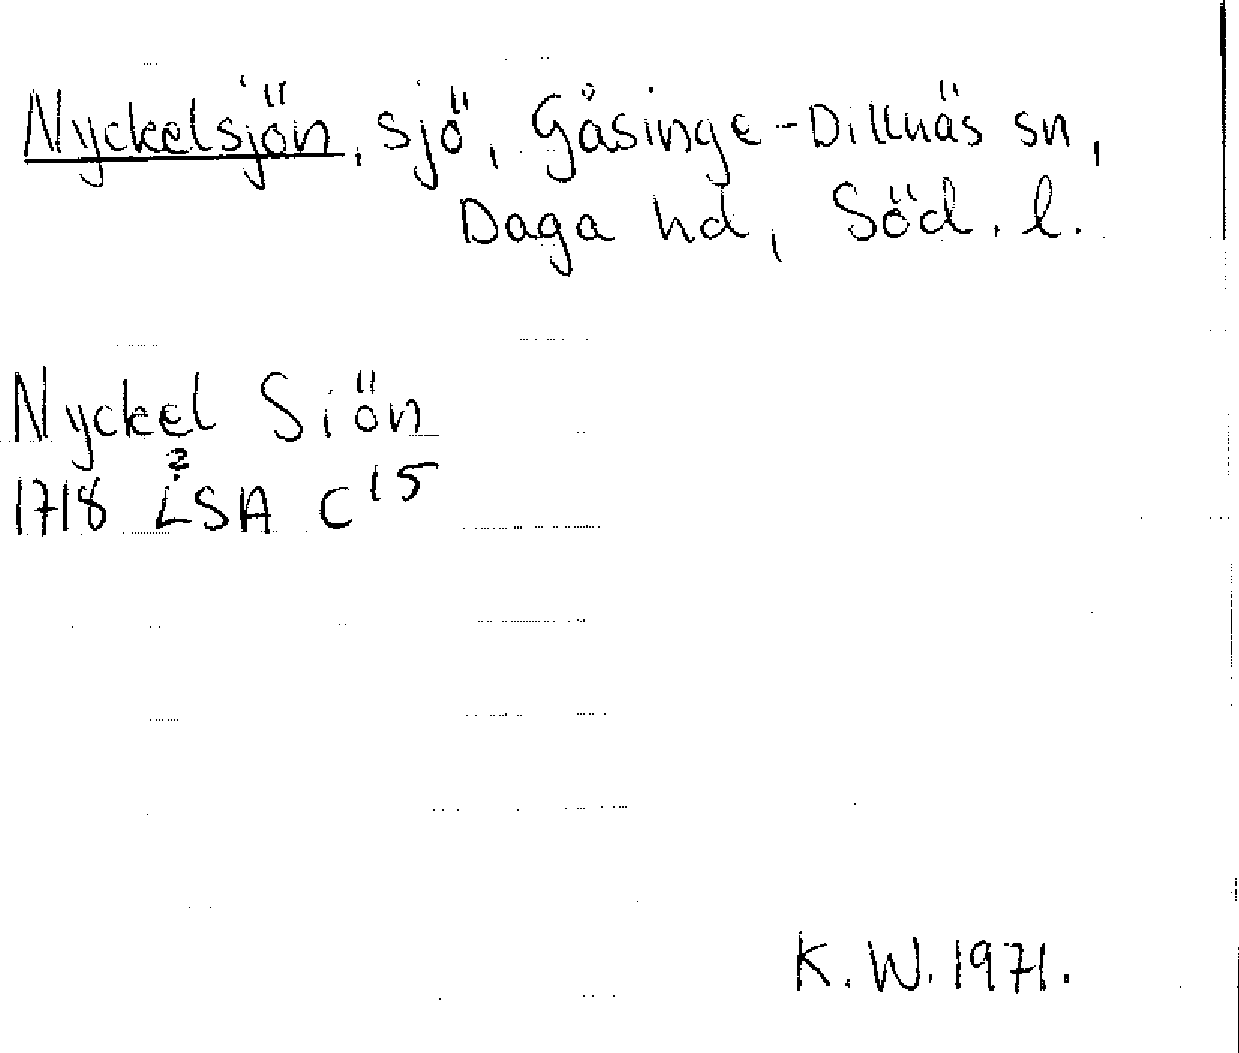 Nyckelsjön, sjö, Gåsinge-Dillnäs sn,
Daga hd, Söd. l.
Nyckel Siön
?
1718 LSA C 15
K. W. 1971.